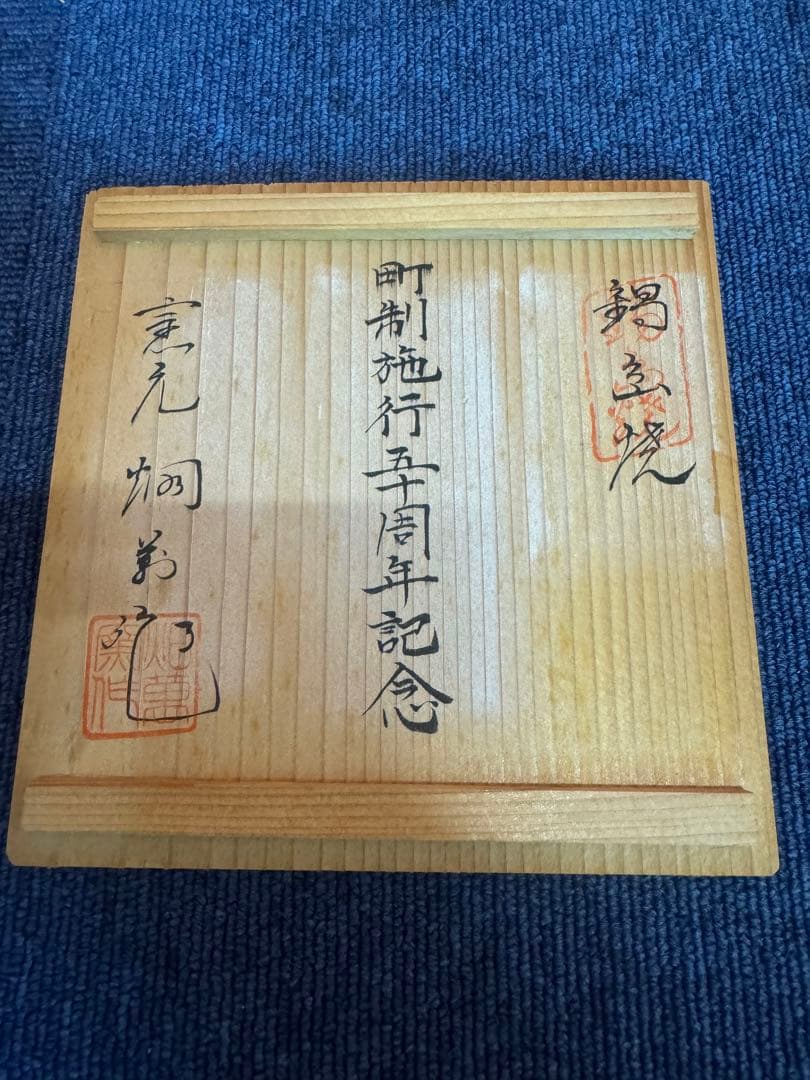 鍋島焼
町制施行五十周年記念
窯元 畑萬